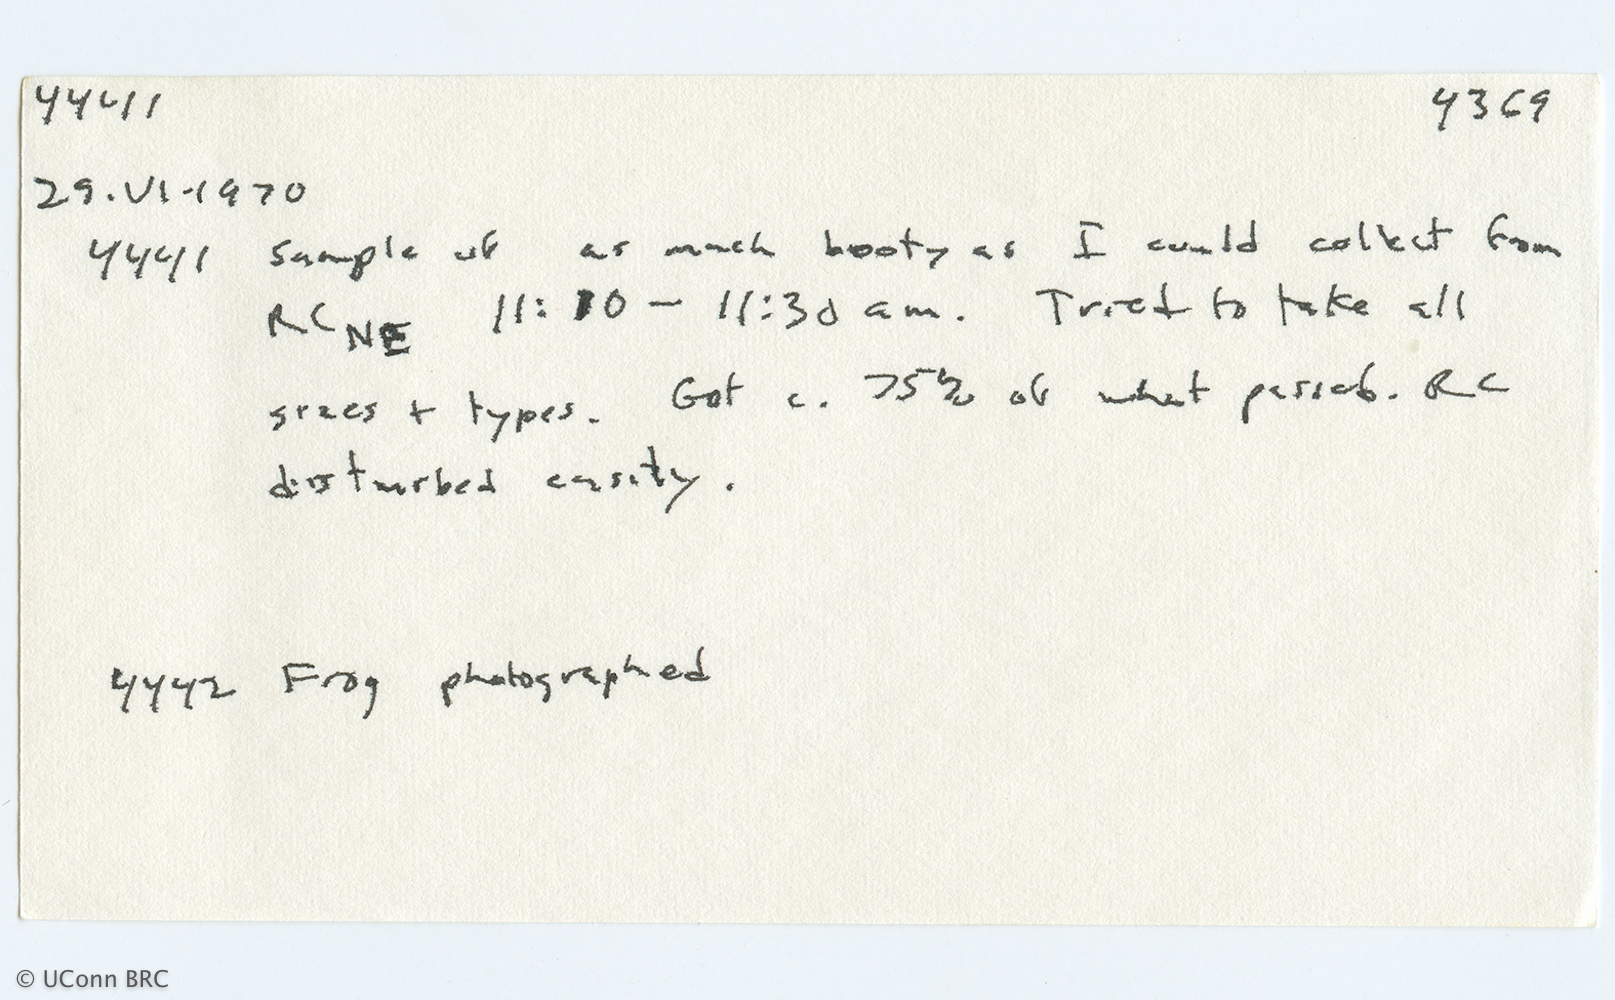 4441 4369
29.VI.1970
4441 Sample of as much booty as I could collect from
RC NE 11:10 - 11:30 am. Tried to take all
sizes + types. Got c. 75% of what passed. RC
disturbed easily.
4442 Frog photographed
© UConn BRC